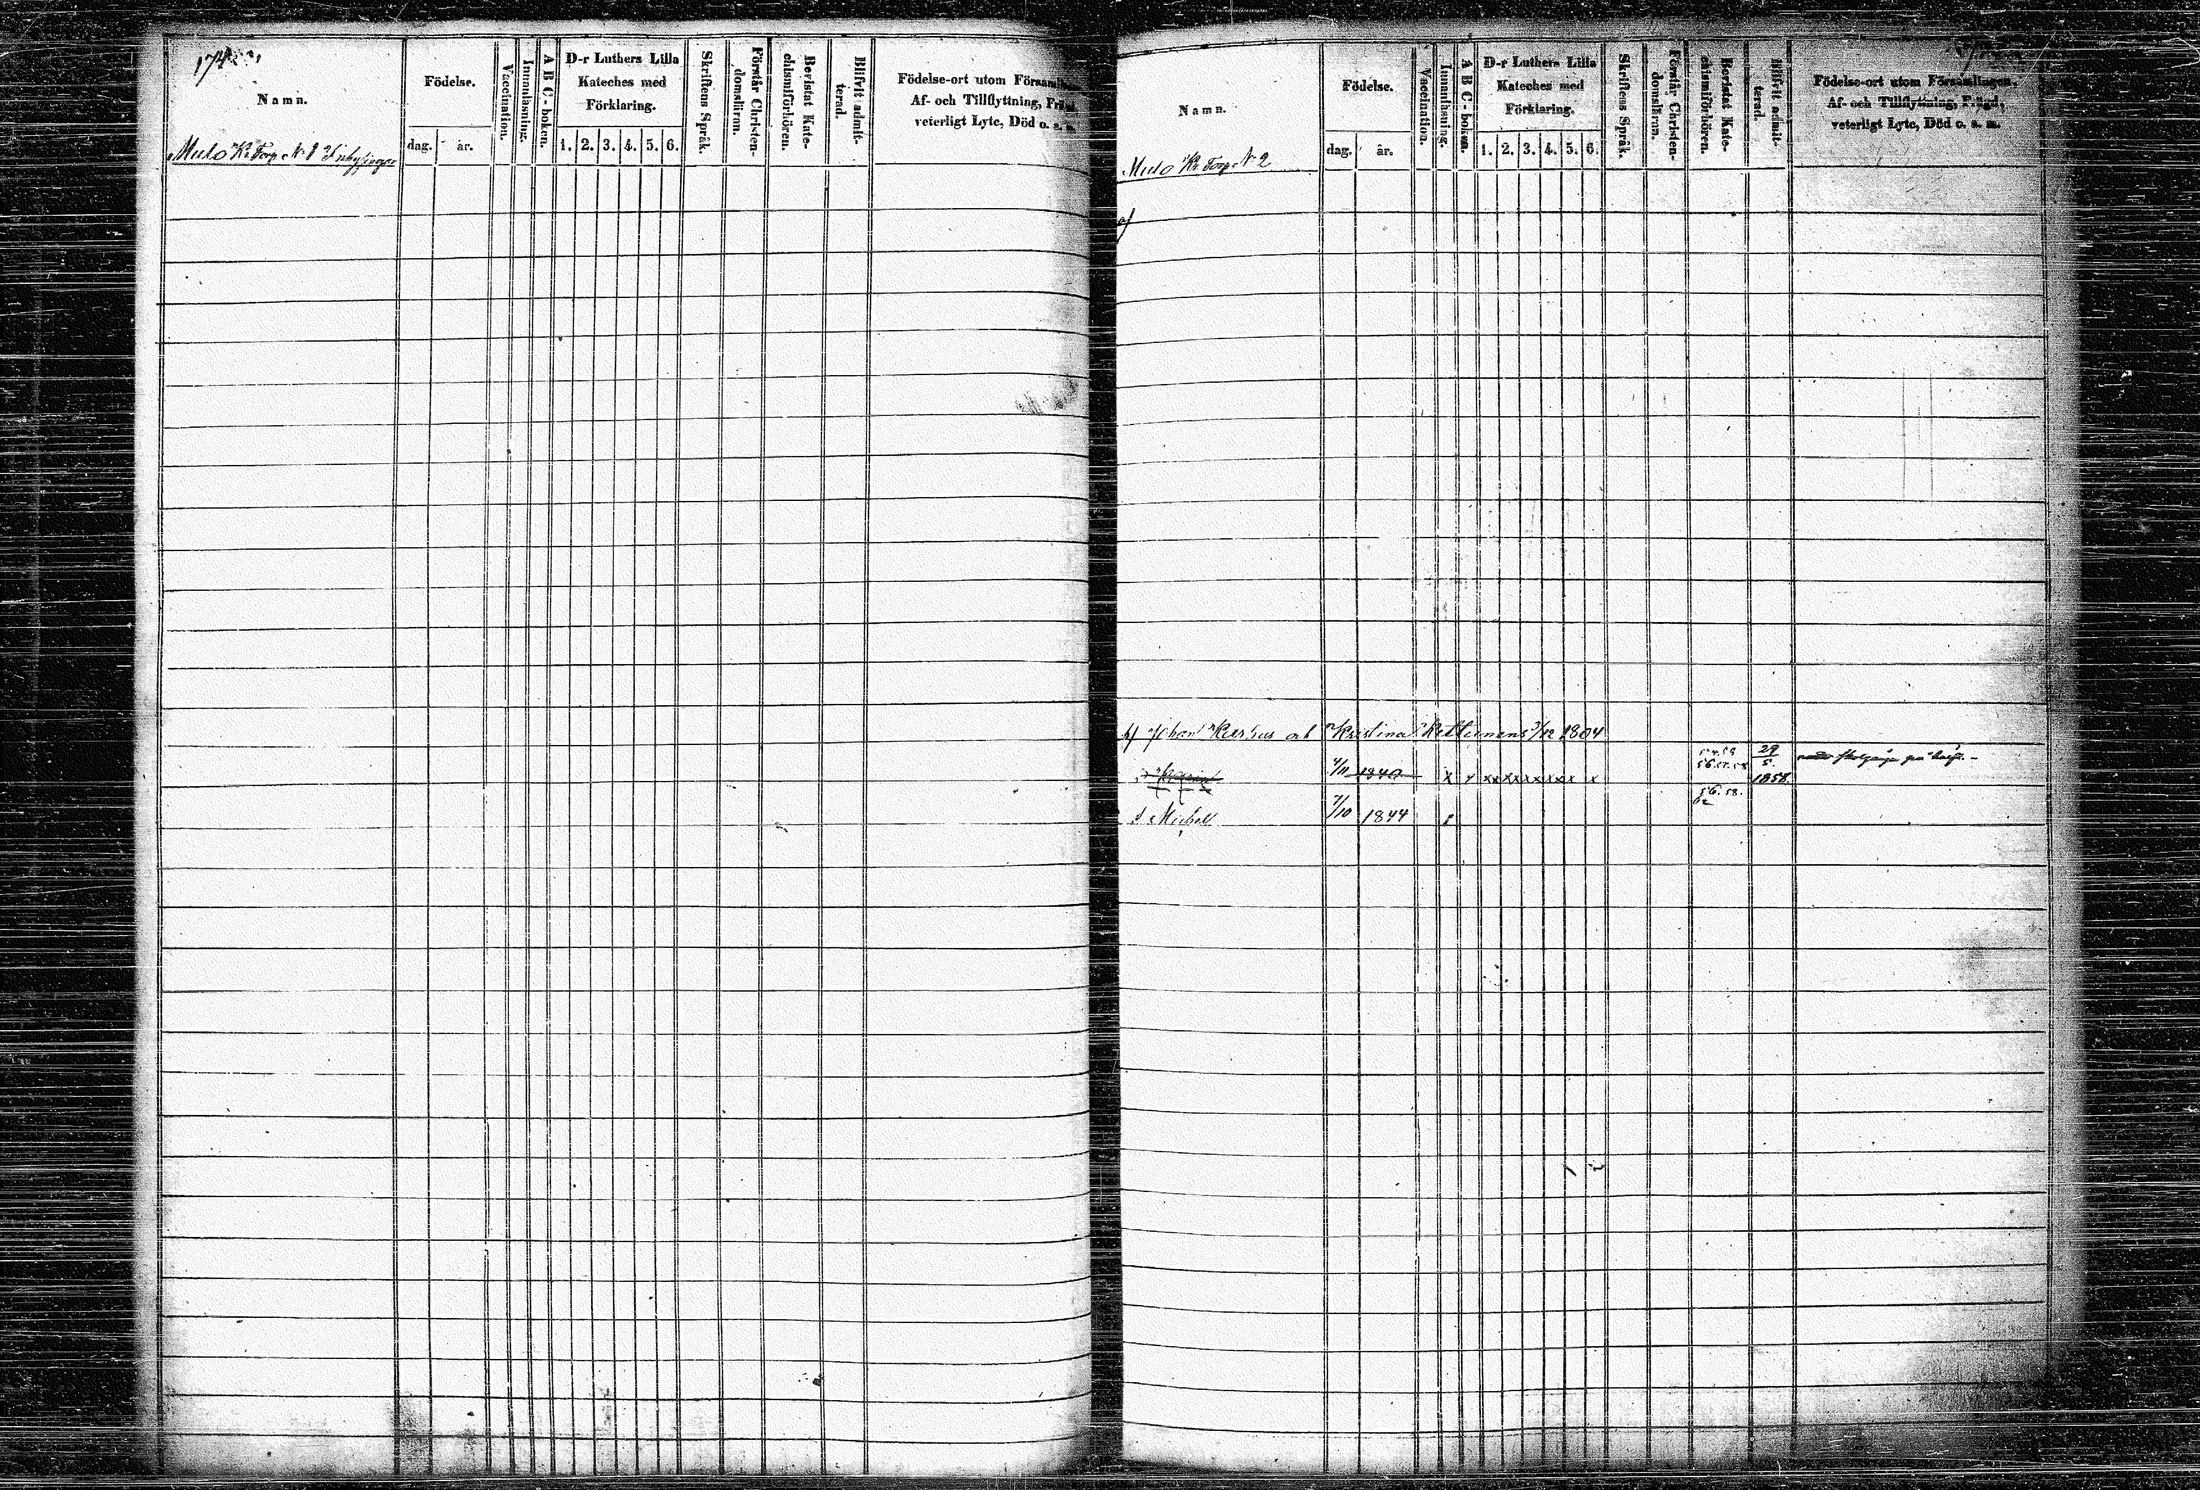 174
Namn.
Födelse.
dag.
år.
Vaccination.
Innanläsning.
A B C-boken.
D-r Luthers Lilla
Kateches med
Förklaring.
1. 2. 3. 4. 5. 6.
Skriftens Språk.
Förstår Christen-
domsläran.
Bevistat Kate-
chismiförhören.
Blifvit admit-
terad.
Födelse-ort utom
Af- och Tillflyttning,
veterligt Lyte, Död o. a. m.
Mulo Kr Torp N 1
Namn.
Födelse.
dag.
år.
Vaccination.
Innanläsning.
A B C-boken.
D-r Luthers Lilla
Kateches med
Förklaring.
1. 2. 3. 4. 5. 6.
Skriftens Språk.
Förstår Christen-
domsläran.
Bevistat Kate-
chismiförhören.
Blifvit admit-
terad.
Födelse-ort utom Församlingen,
Af- och Tillflyttning, Frägd,
veterligt Lyte, Död o. a. m.
Mulo Kr Torp N 2
Johan och Kristina 3/12 1804
4/11 1840 x x x x x x x x x 29/5 1858.
s Michel 7/10 1844 56. 58. 62